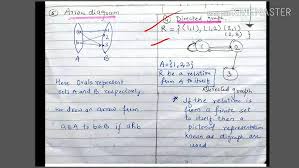 ⑤ Arrow diagram
A B
Here Ovals represent
sets A and B respectively
we draw an arrow from
a∈A to b∈B if aRb
⑥ Directed graph
R = {(1,1), (1,2) (2,1)
(2,3)
1 2
3
A={1,2,3}
R be a relation
from A to itself
Directed graph
* If the relation is
from a finite set
to itself then a
pictorial representation
known as digraph are
used
KINEMASTER